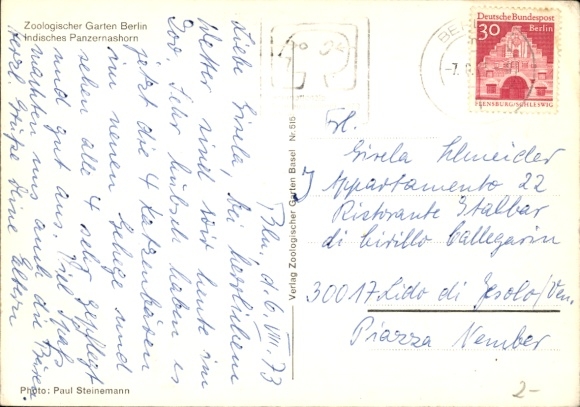 Zoologischer Garten Berlin
Indisches Panzernashorn
Bln, d. 6. VIII. 73
Liebe Gisela, bei herrlichem
Wetter sind wir heute im
Zoo. Sehr hübsch haben es
jetzt die 4 Katzenbären
im neuen Gehege und
sehen alle 4 sehr gepflegt
und gut aus. Viel Spaß
machten uns auch die
Herzl. Grüße Deine Eltern
Photo: Paul Steinemann
Verlag Zoologischer Garten Basel Nr. 616
Deutsche Bundespost
30 Berlin
FLENSBURG/SCHLESWIG
Frl.
Gisela Schneider
Appartamento 22
Ristorante Italbar
di Cirillo Callegarin
30017 Lido di Jesolo/Ven.
Piazza Nember
2-